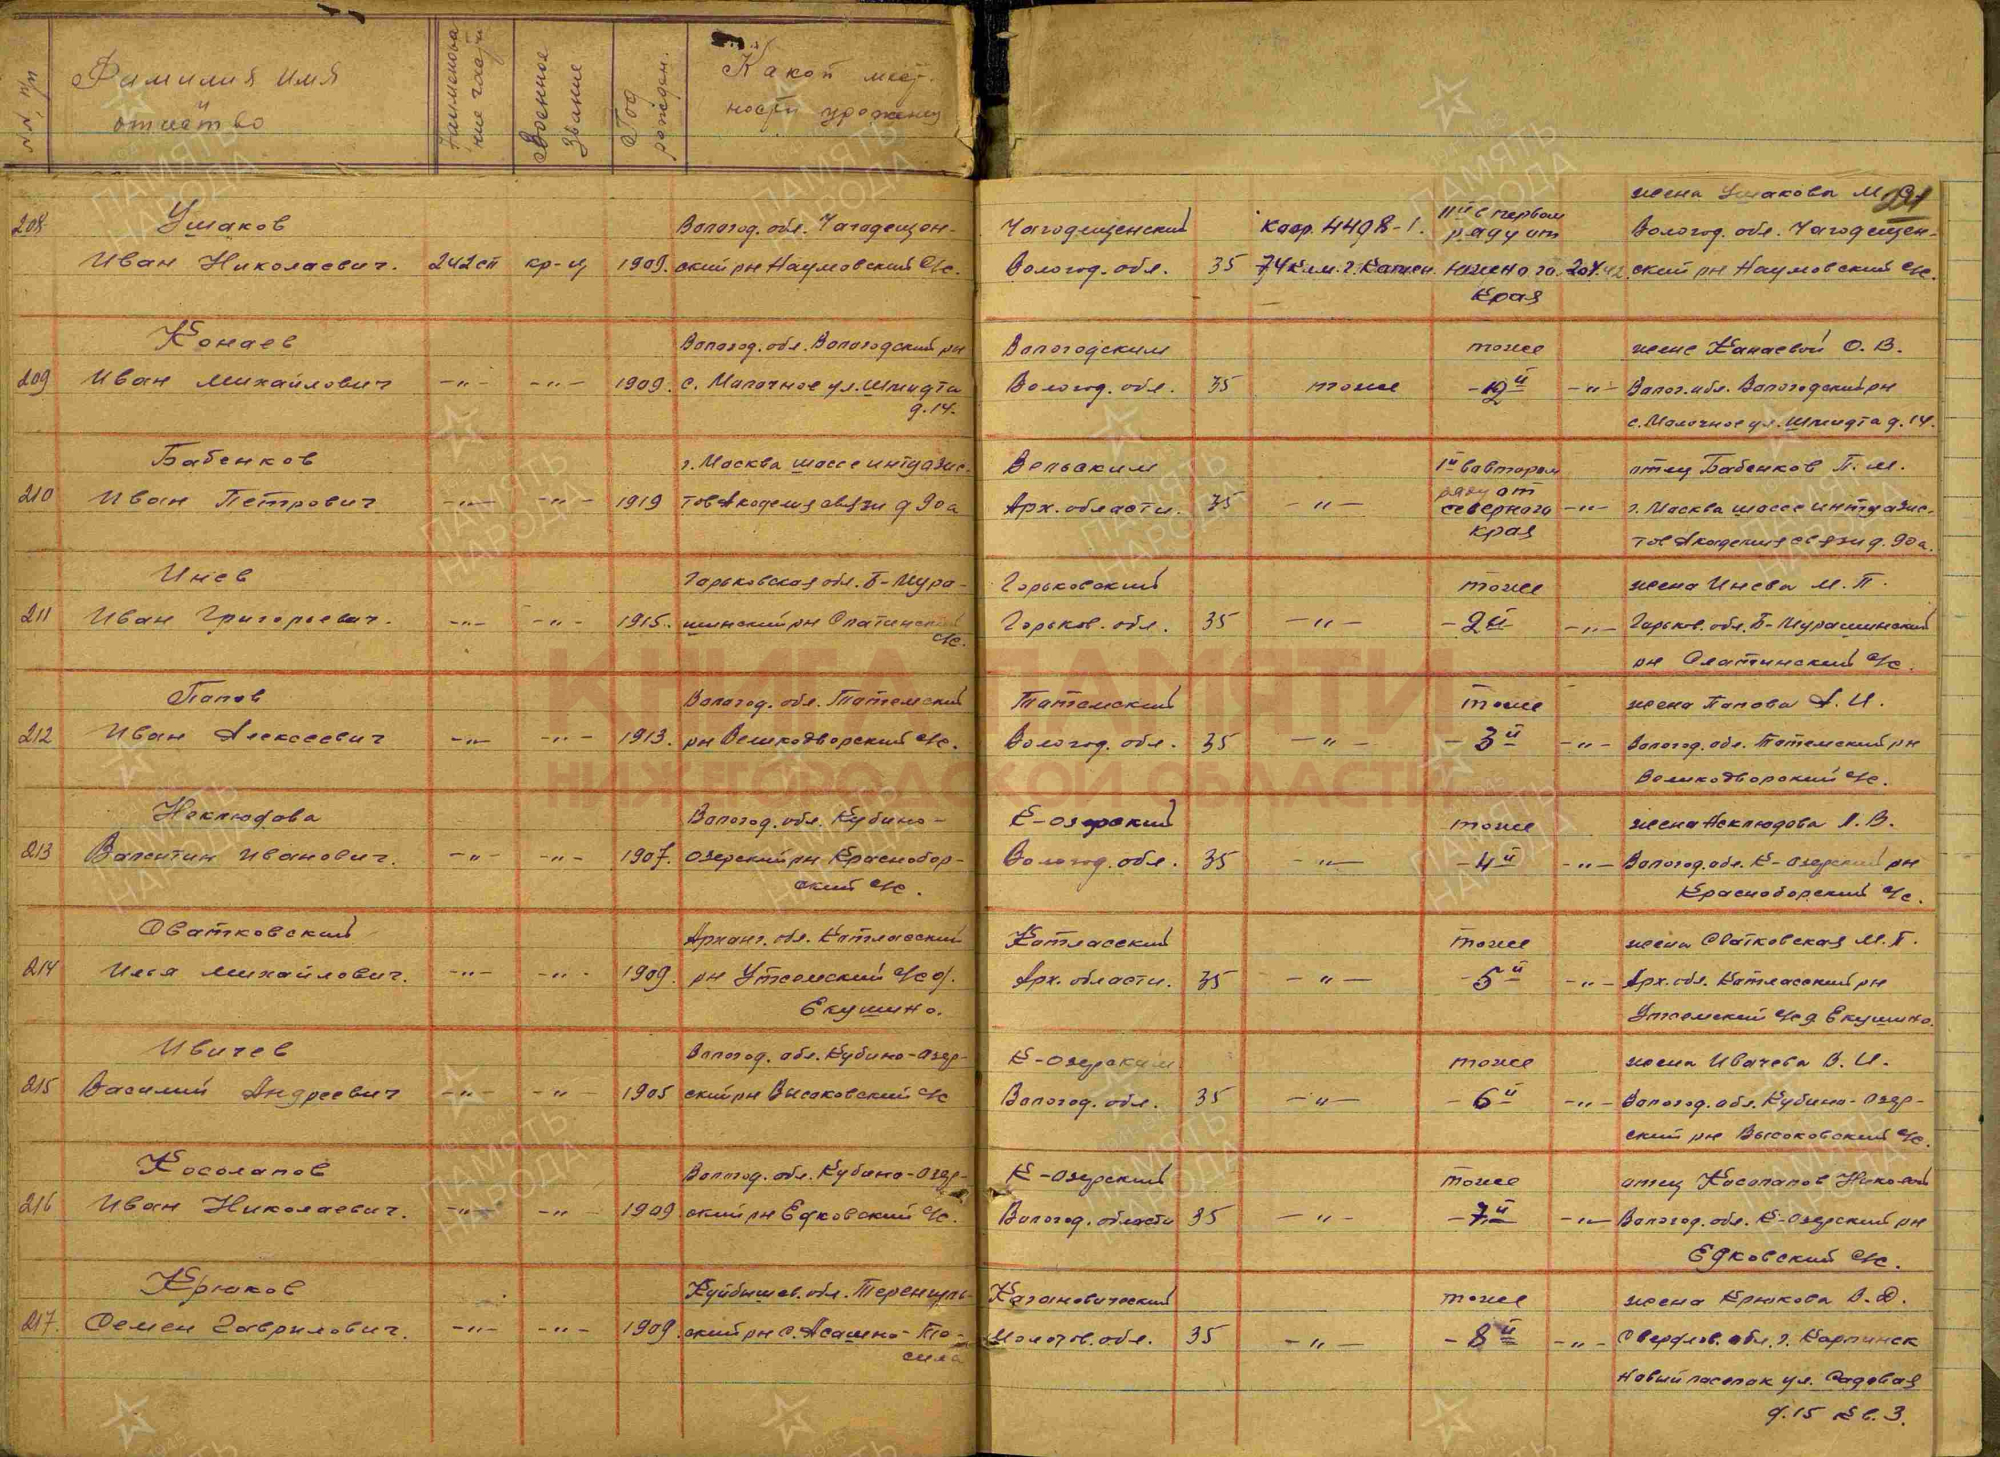 NN п/п
Фамилия имя
и
отчество
Наименова
ние части
Военное
Звание
Год
рожден.
Какой мест-
ности уроженец
жена Ушакова М.
208
Ушаков
Иван Николаевич.
242 сп
кр-ц
1909.
Вологод. обл. Чагодещен-
ский рн Наумовский с/с.
Чагодещенский
Вологод. обл.
35
Квадр. 4498-1.
74 клм. г. Кстен.
11й в первом
ряду от
южного
края
Вологод. обл. Чагодещен-
ский рн Наумовский с/с.
209
Конаев
Иван Михайлович
-"-
-"-
1909.
Вологод. обл. Вологодский рн
с. Молочное ул. Шмидта
д. 14.
Вологодским
Вологод. обл.
35
тоже
тоже
-12й
-"-
жене Канаевой О. В.
Волог. обл. Вологодский рн
с. Молочное ул. Шмидта д. 14.
210
Бабенков
Иван Петрович
-"-
-"-
1919
г. Москва шоссе интузис-
тов Академия связи д 90а
Вельским
Арх. области.
35
-"-
1й во втором
ряду от
северного
края
-"-
отец Бабенков П. М.
г. Москва шоссе интузис-
тов Академия связи д. 90а.
211
Инев
Иван Григорьевич.
-"-
-"-
1915.
Горьковская обл. Б-Мура-
шинский рн Слатинский
с/с.
Горьковский
Горьков. обл.
35
-"-
тоже
-2й
-"-
жена Инева М. П.
Горьков. обл. Б-Мурашинский
рн Слатинский с/с.
212
Попов
Иван Алексеевич
-"-
-"-
1913.
Вологод. обл. Тотемский
рн Великодворский с/с.
Тотемский
Вологод. обл.
35
-"-
тоже
-3й
-"-
жена Попова А. И.
Вологод. обл. Тотемский рн
Великодворский с/с.
213
Неклюдова
Валентин Иванович.
-"-
-"-
1907.
Вологод. обл. Кубино-
озерский рн Краснобор-
ский с/с.
К-озерский
Вологод. обл.
35
-"-
тоже
-4й
-"-
жена Неклюдова Л. В.
Вологод. обл. К-озерский рн
Красноборский с/с.
214
Сватковский
Илья Михайлович.
-"-
-"-
1909.
Арханг. обл. Котласский
рн Утсомский с/с д.
Екушино.
Котласский
Арх. области.
35
-"-
тоже
-5й
-"-
жена Сватковская М. П.
Арх. обл. Котласский рн
Утсомский с/с д Екушино.
215
Ивичев
Василий Андреевич
-"-
-"-
1905
Вологод. обл. Кубино-озер-
ский рн Высоковский с/с
К-озерским
Вологод. обл.
35
-"-
тоже
-6й
-"-
жена Ивачева В. И.
Вологод. обл. Кубино-озер-
ский рн Высоковский с/с.
216
Косолапов
Иван Николаевич.
-"-
-"-
1909.
Вологод. обл. Кубино-озер-
ский рн Едковский с/с.
К-озерский
Вологод. области
35
-"-
тоже
-7й
-"-
отец Косолапов Николай
Вологод. обл. К-озерский рн
Едковский с/с.
217.
Крюков
Семен Гаврилович.
-"-
-"-
1909.
Куйбышев. обл. Теренгуль-
ский рн с. Ясашно-Та-
Кагановический
Молотов. обл.
35
-"-
тоже
-8й
-"-
жена Крюкова В. Д.
Свердлов. обл. г. Карпинск
Новый поселок ул. Садовая
д. 15 Кв. 3.
КНИГА ПАМЯТИ
НИЖЕГОРОДСКОЙ ОБЛАСТИ
ПАМЯТЬ
НАРОДА